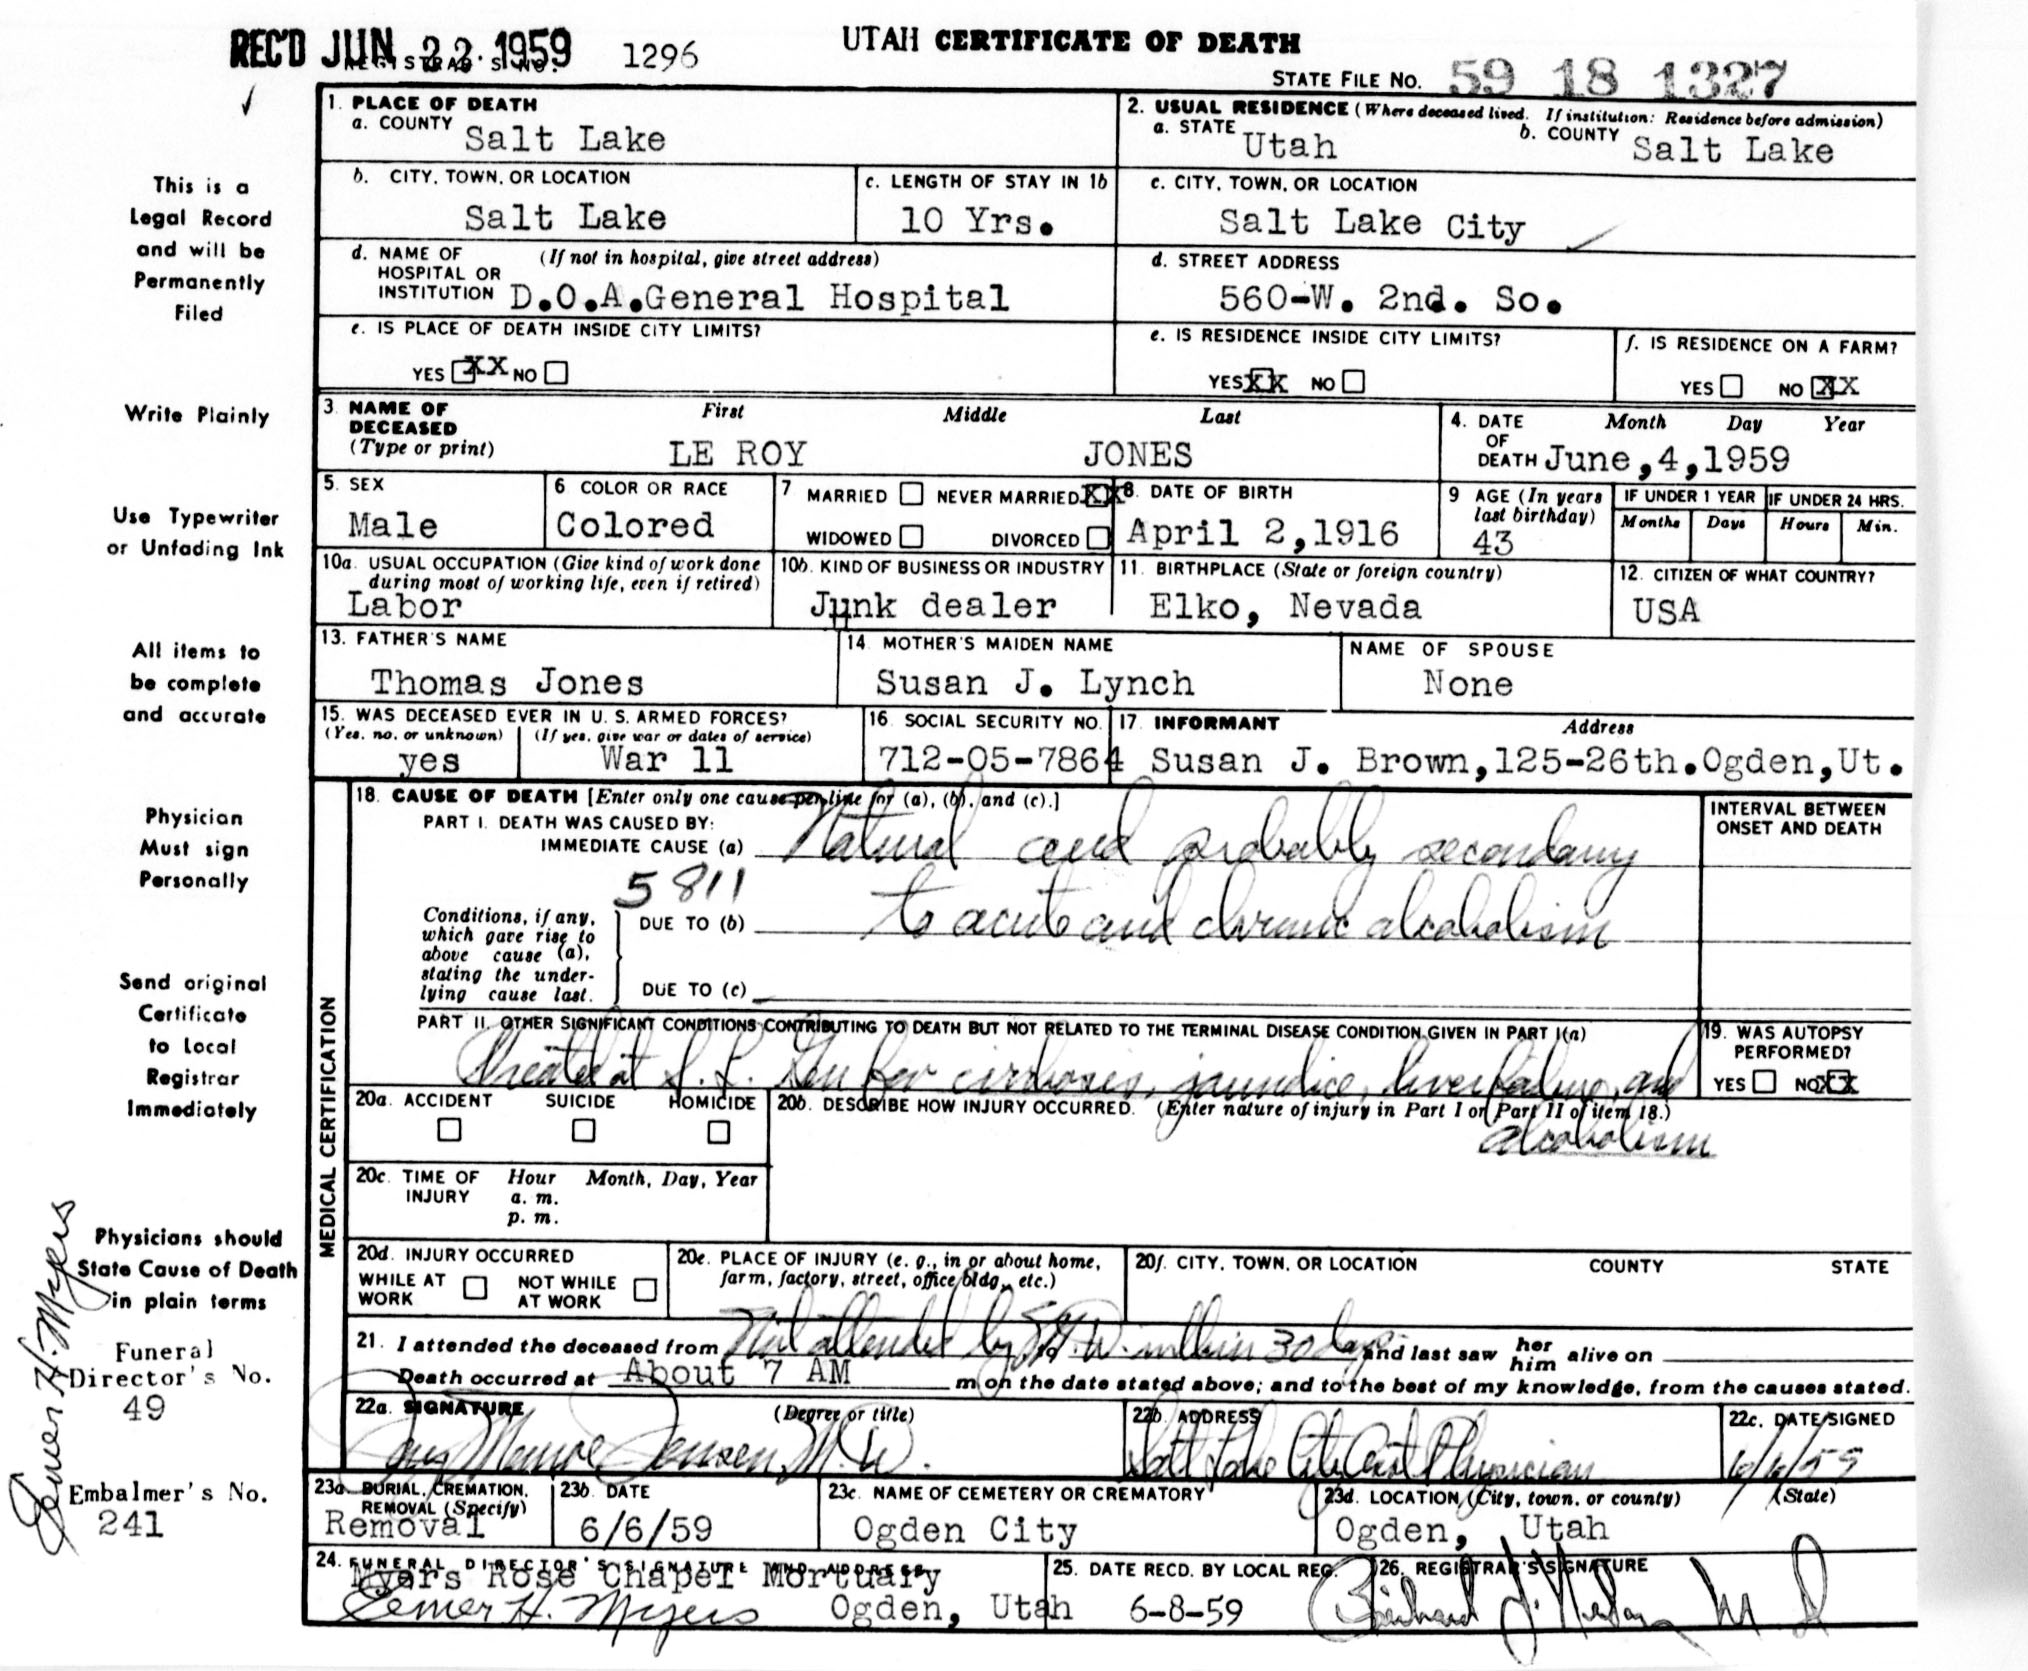 REC'D JUN 22 1959
REGISTRAR'S NO. 1296
UTAH CERTIFICATE OF DEATH
STATE FILE NO. 59 18 1327
This is a
Legal Record
and will be
Permanently
Filed
Write Plainly
Use Typewriter
or Unfading Ink
All items to
be complete
and accurate
Physician
Must sign
Personally
Send original
Certificate
to Local
Registrar
Immediately
Physicians should
State Cause of Death
in plain terms
Funeral
Director's No.
49
Embalmer's No.
241
Elmer H. Myers
1. PLACE OF DEATH
a. COUNTY Salt Lake
2. USUAL RESIDENCE (Where deceased lived. If institution: Residence before admission)
a. STATE Utah b. COUNTY Salt Lake
b. CITY, TOWN, OR LOCATION
Salt Lake
c. LENGTH OF STAY IN 1b
10 Yrs.
c. CITY, TOWN, OR LOCATION
Salt Lake City
d. NAME OF HOSPITAL OR INSTITUTION (If not in hospital, give street address)
D.O.A.General Hospital
d. STREET ADDRESS
560-W. 2nd. So.
e. IS PLACE OF DEATH INSIDE CITY LIMITS?
YES XX NO
e. IS RESIDENCE INSIDE CITY LIMITS?
YES XX NO
f. IS RESIDENCE ON A FARM?
YES NO XX
3. NAME OF DECEASED (Type or print) First Middle Last
LE ROY JONES
4. DATE OF DEATH Month Day Year
June,4,1959
5. SEX
Male
6 COLOR OR RACE
Colored
7 MARRIED NEVER MARRIED XX
WIDOWED DIVORCED
8. DATE OF BIRTH
April 2,1916
9 AGE (In years last birthday)
43
IF UNDER 1 YEAR IF UNDER 24 HRS.
Months Days Hours Min.
10a. USUAL OCCUPATION (Give kind of work done during most of working life, even if retired)
Labor
10b. KIND OF BUSINESS OR INDUSTRY
Junk dealer
11. BIRTHPLACE (State or foreign country)
Elko, Nevada
12. CITIZEN OF WHAT COUNTRY?
USA
13. FATHER'S NAME
Thomas Jones
14. MOTHER'S MAIDEN NAME
Susan J. Lynch
NAME OF SPOUSE
None
15. WAS DECEASED EVER IN U. S. ARMED FORCES?
(Yes, no, or unknown) (If yes, give war or dates of service)
yes War 11
16. SOCIAL SECURITY NO.
712-05-7864
17. INFORMANT Address
Susan J. Brown,125-26th.Ogden,Ut.
MEDICAL CERTIFICATION
18. CAUSE OF DEATH [Enter only one cause per line for (a), (b), and (c).]
PART I. DEATH WAS CAUSED BY:
IMMEDIATE CAUSE (a) Natural and probably secondary
5811
Conditions, if any, which gave rise to above cause (a), stating the underlying cause last.
DUE TO (b) to acute and chronic alcoholism
DUE TO (c)
INTERVAL BETWEEN ONSET AND DEATH
PART II. OTHER SIGNIFICANT CONDITIONS CONTRIBUTING TO DEATH BUT NOT RELATED TO THE TERMINAL DISEASE CONDITION GIVEN IN PART I(a)
treated at S. L. Gen for cirrhosis, jaundice, liver failure, and
alcoholism
19. WAS AUTOPSY PERFORMED?
YES NO XX
20a. ACCIDENT SUICIDE HOMICIDE
20b. DESCRIBE HOW INJURY OCCURRED. (Enter nature of injury in Part I or Part II of item 18.)
20c. TIME OF INJURY Hour Month, Day, Year
a. m.
p. m.
20d. INJURY OCCURRED
WHILE AT WORK NOT WHILE AT WORK
20e. PLACE OF INJURY (e. g., in or about home, farm, factory, street, office bldg., etc.)
20f. CITY, TOWN, OR LOCATION COUNTY STATE
21. I attended the deceased from Not attended by within 30 days and last saw her him alive on
Death occurred at About 7 AM m on the date stated above; and to the best of my knowledge, from the causes stated.
22a. SIGNATURE (Degree or title)
Monroe Jensen, M.D.
22b. ADDRESS
Salt Lake City Physician
22c. DATE SIGNED
6/6/59
23a. BURIAL, CREMATION, REMOVAL (Specify)
Removal
23b. DATE
6/6/59
23c. NAME OF CEMETERY OR CREMATORY
Ogden City
23d. LOCATION (City, town, or county) (State)
Ogden, Utah
24. FUNERAL DIRECTOR'S SIGNATURE AND ADDRESS
Myers Rose Chapel Mortuary
Elmer H. Myers Ogden, Utah
25. DATE RECD. BY LOCAL REG.
6-8-59
26. REGISTRAR'S SIGNATURE